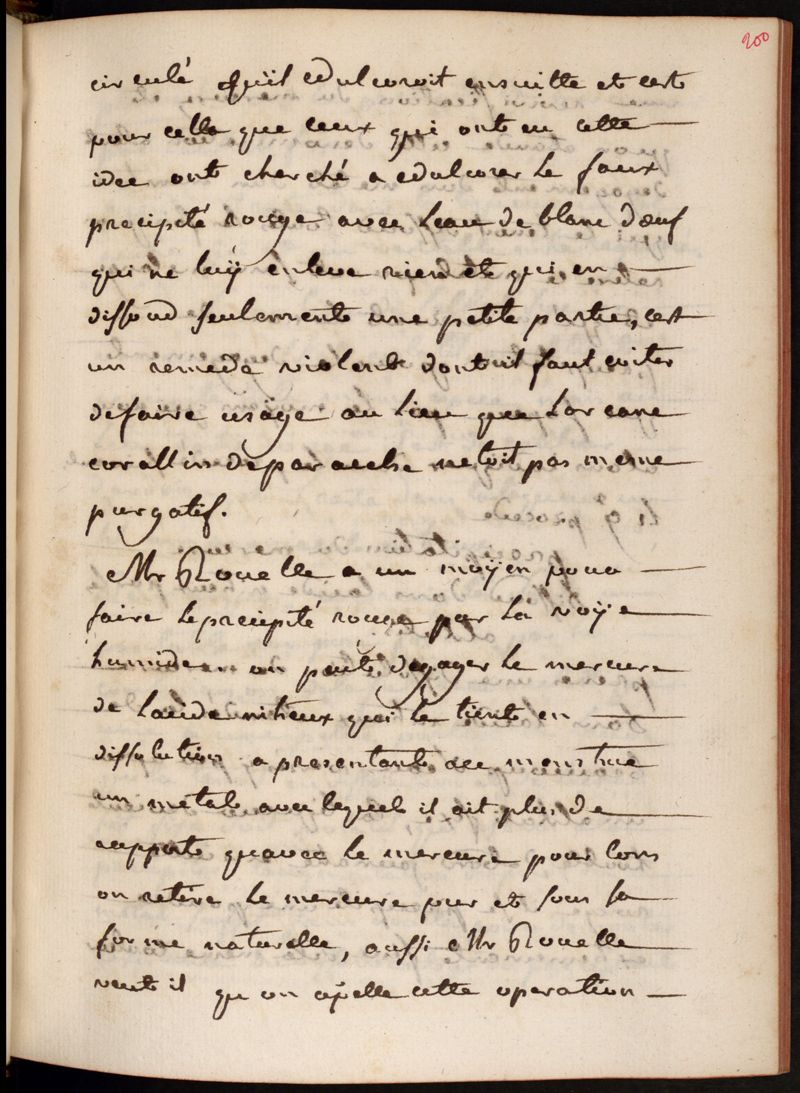 200
circulé quïl edulcoroit ensuitte et cest
pour cella que ceux qui ont eu cette
idee ont cherché a edulcorer le faux
precipité rouge avec leau de blanc dœuf
qui ne luÿ enleve rien et qui en
dissoud seulement une petite partie, cest
un remede violent dont il faut eviter
de faire usage au lieu que larcane
corallin de paracelse netoit pas meme
purgatif.
Mr Rouelle a un moÿen pour
faire le precipité rouge par la voÿe
humide on peut degager le mercure
de lacide nitreux qui le tient en
dissolution a presentant a ce menstrue
un metal avec lequel il ait plus de
rapport quavec le mercure pour lors
on retire le mercure pur et sous sa
forme naturelle, aussi Mr Rouelle
veut il qu on apelle cette operation